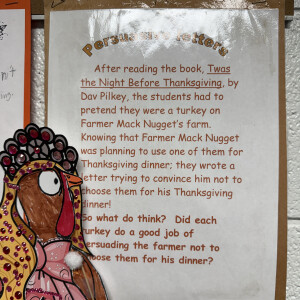 After reading the book, Twas
the Night Before Thanksgiving, by
Dav Pilkey, the students had to
pretend they were a turkey on
Farmer Mack Nugget's farm.
Knowing that Farmer Mack Nugget
was planning to use one of them for
Thanksgiving dinner; they wrote a
letter trying to convince him not to
choose them for his Thanksgiving
dinner!
So what do think? Did each
turkey do a good job of
persuading the farmer not to
choose them for his dinner?